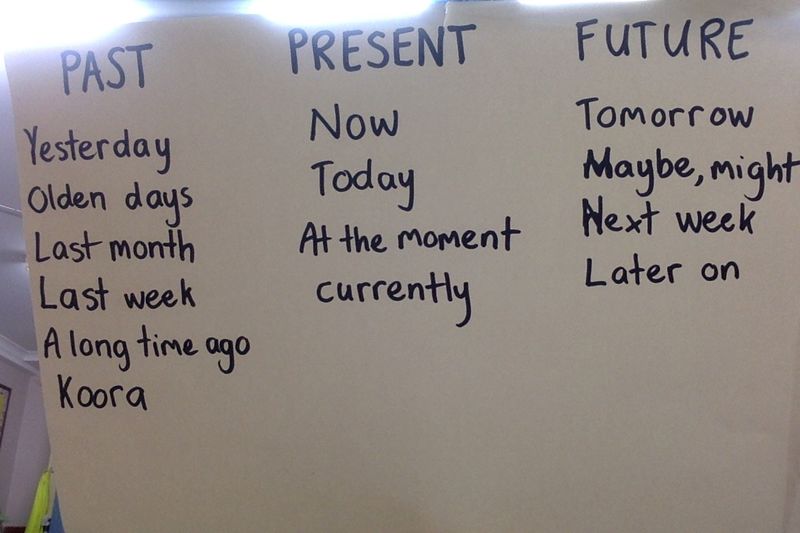 PAST
Yesterday
Olden days
Last month
Last week
A long time ago
Koora
PRESENT
Now
Today
At the moment
currently
FUTURE
Tomorrow
Maybe, might
Next week
Later on